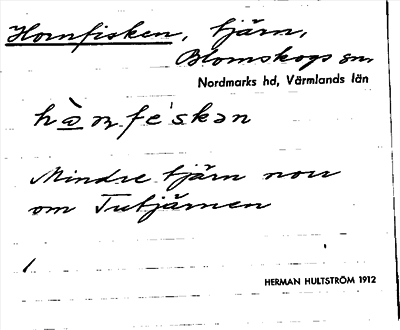 Hornfisken, tjärn,
Blomskogs sn,
Nordmarks hd, Värmlands län
Mindre tjärn norr
om Tretjärnen
HERMAN HULTSTRÖM 1912